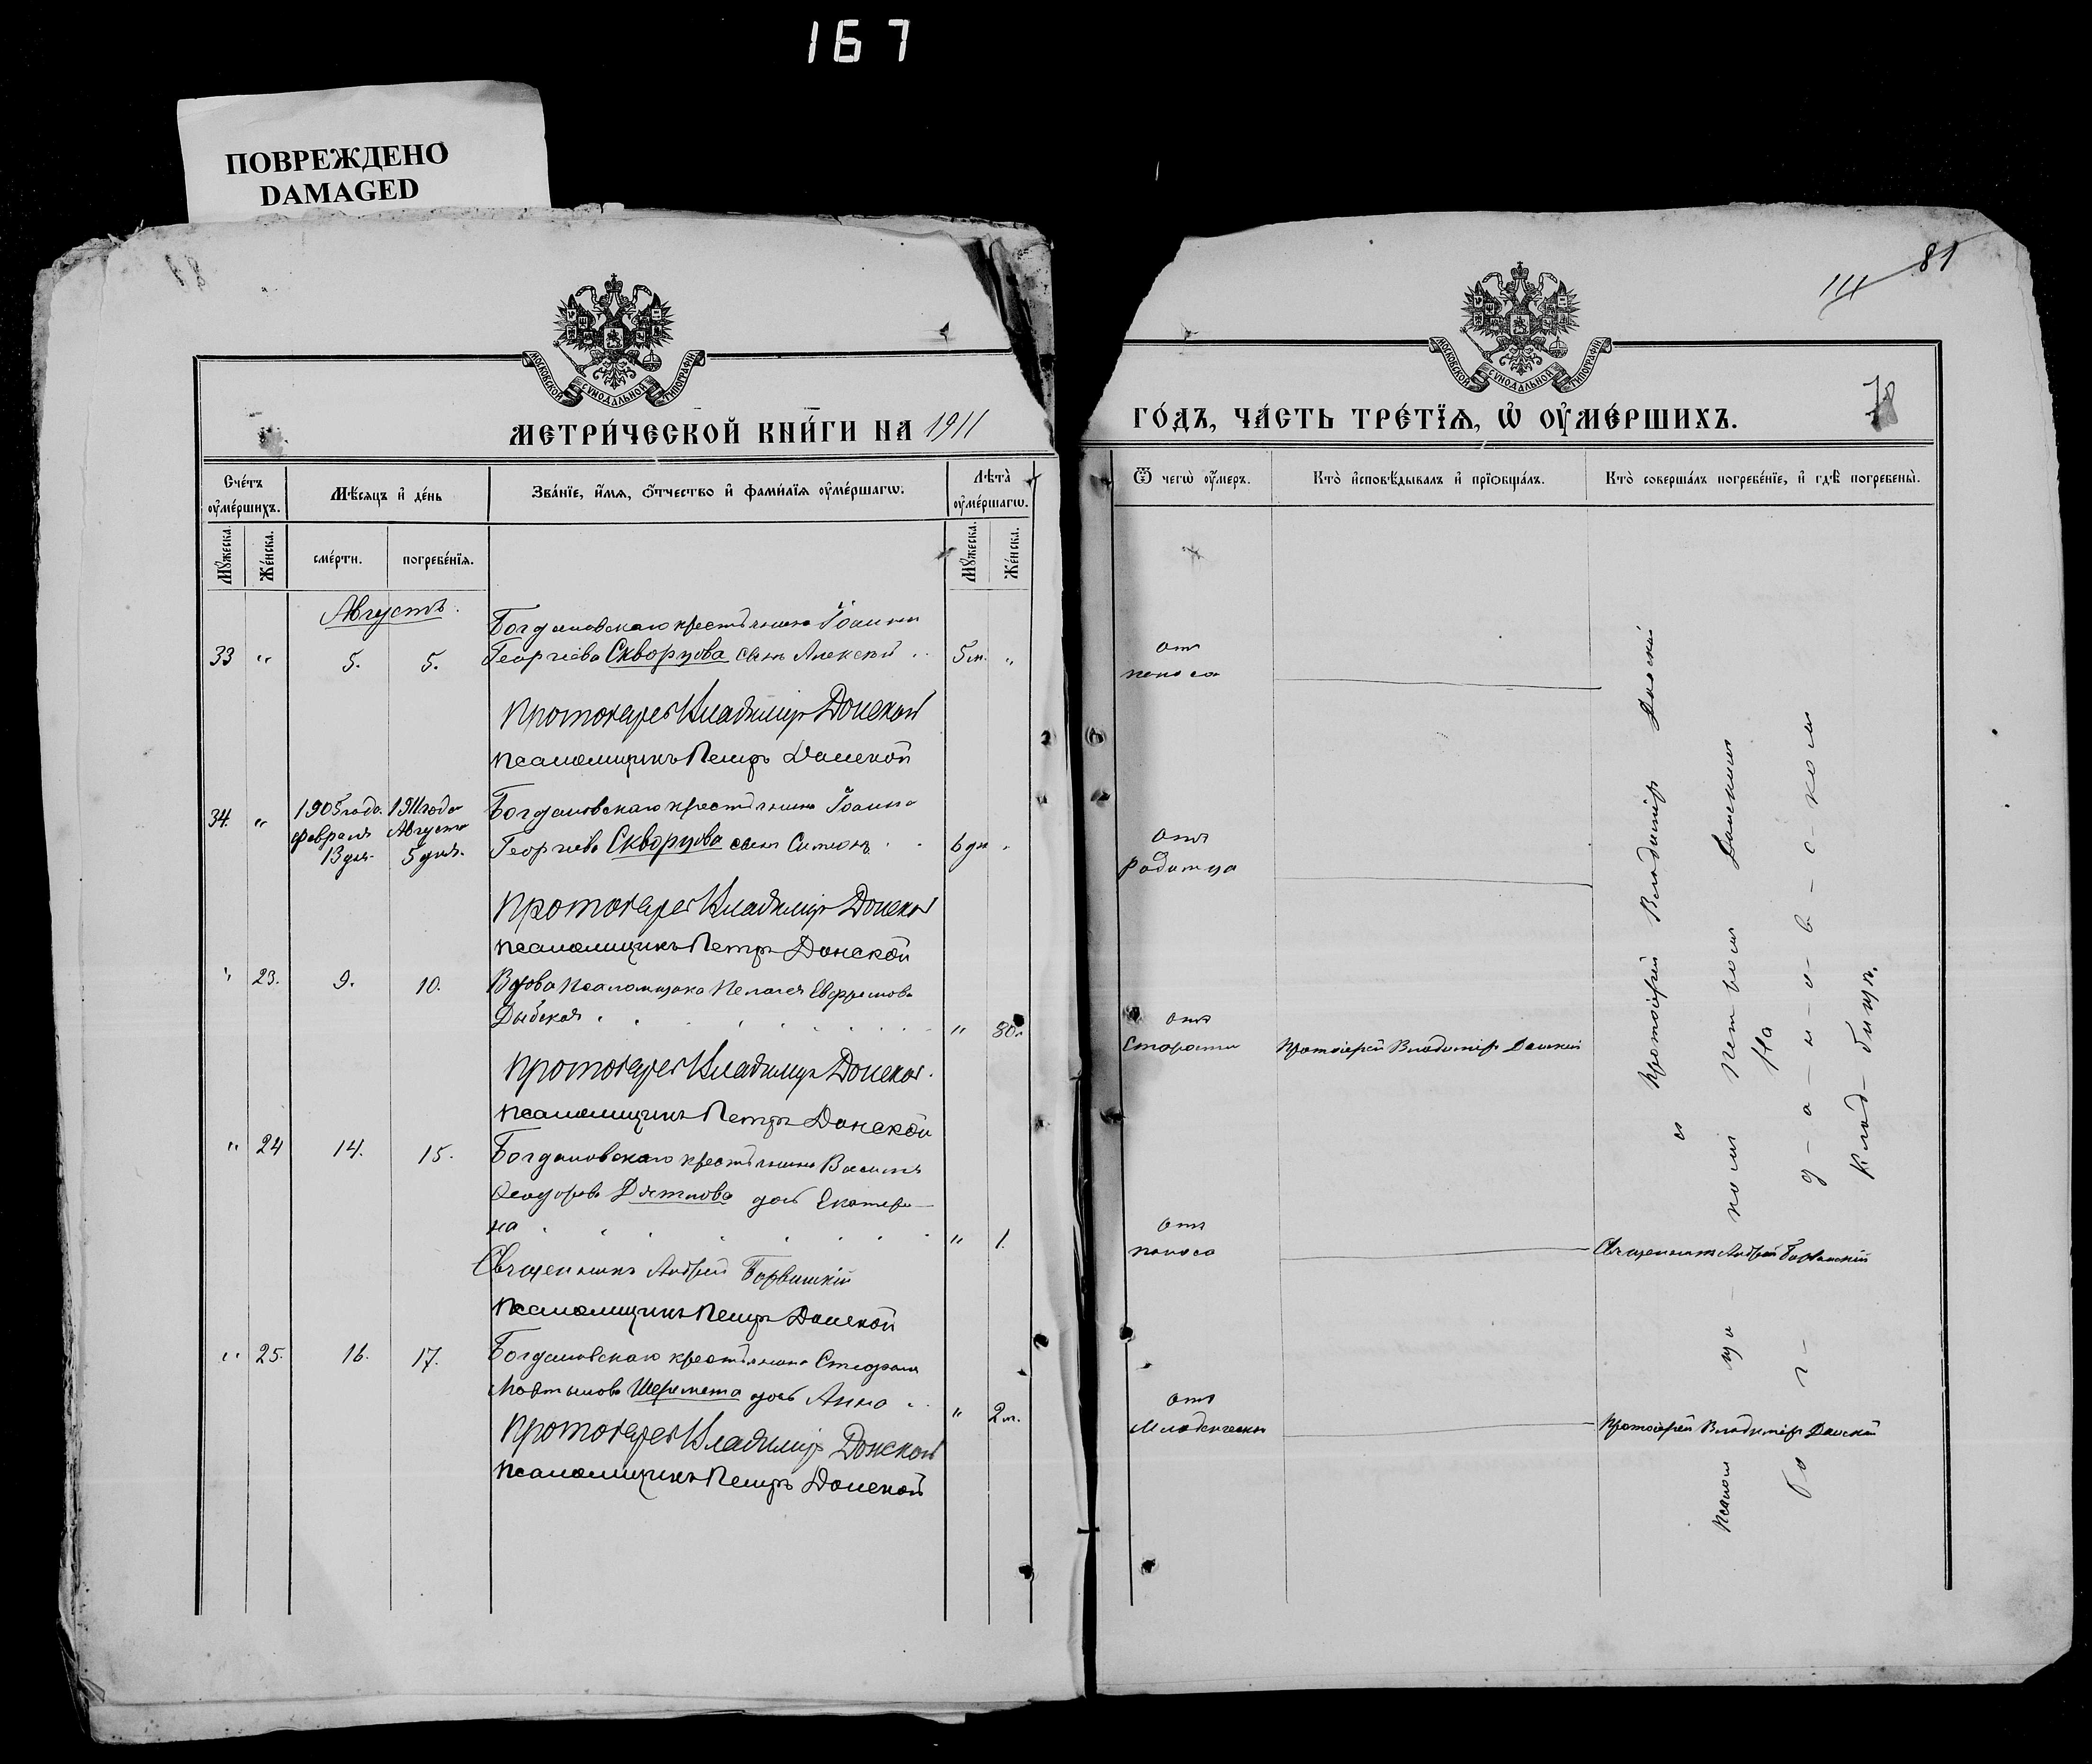 167
ПОВРЕЖДЕНО
DAMAGED
81
МОСКОВСКОЙ СѴНОДАЛЬНОЙ ТИПОГРАФІИ
МЕТРИ́ЧЕСКОЙ КНИ́ГИ НА 1911
Сче́тъ оу҆ме́ршихъ.
Мѣ́сяцъ и҆ де́нь
Зва́нїе, и҆́мѧ, ѻ҆́тчество и҆ фами́лїѧ оу҆ме́ршагѡ.
Лѣ́та оу҆ме́ршагѡ.
Мꙋ́жеска.
Же́нска.
сме́рти.
погребе́нїѧ.
Мꙋ́жеска.
Же́нска.
Августъ.
Богдановскаго крестьянина Іоанна
33 " 5. 5. Георгіева Скворцова сынъ Алексѣй 5 м. "
Протоіерей Владиміръ Донской
Псаломщикъ Петръ Донской
34. " 1905 года. 1911 года Богдановскаго крестьянина Іоанна
Февраля Августа
13 дня. 5 дня. Георгіева Скворцова сынъ Симеонъ 6 дн "
Протоіерей Владиміръ Донской
Псаломщикъ Петръ Донской
" 23. 9. 10. Вдова псаломщика Пелагея Евфремова
Дыбская " 80 л
Протоіерей Владиміръ Донской.
Псаломщикъ Петръ Донской
" 24 14. 15. Богдановскаго крестьянина Василія
Ѳеодорова Дятлова дочь Екатери-
на " 1.
Священникъ Андрей
Псаломщикъ Петръ Донской
" 25. 16. 17. Богдановскаго крестьянина Стефана
Мартынова Шеремета дочь Анна " 2 м.
Протоіерей Владиміръ Донской
Псаломщикъ Петръ Донской
111 81
МОСКОВСКОЙ СѴНОДАЛЬНОЙ ТИПОГРАФІИ
78
ГО́ДЪ, ЧА́СТЬ ТРЕ́ТЇѦ, Ѡ҆ ОУ҆МЕ́РШИХЪ.
Ѿ чегѡ̀ оу҆́меръ.
Кто̀ и҆сповѣ́дывалъ и҆ прїѡбща́лъ.
Кто̀ соверша́лъ погребе́нїе, и҆ гдѣ̀ погребены̀.
отъ
поноса
отъ
родимца
отъ
старости Протоіерей Владиміръ Донской
отъ
поноса Священникъ Андрей
отъ
младенческой Протоіерей Владиміръ Донской
Протоіерей Владиміръ Донской
съ псаломщикомъ Петромъ Донскимъ
На
Богдановскомъ
кладбищѣ.